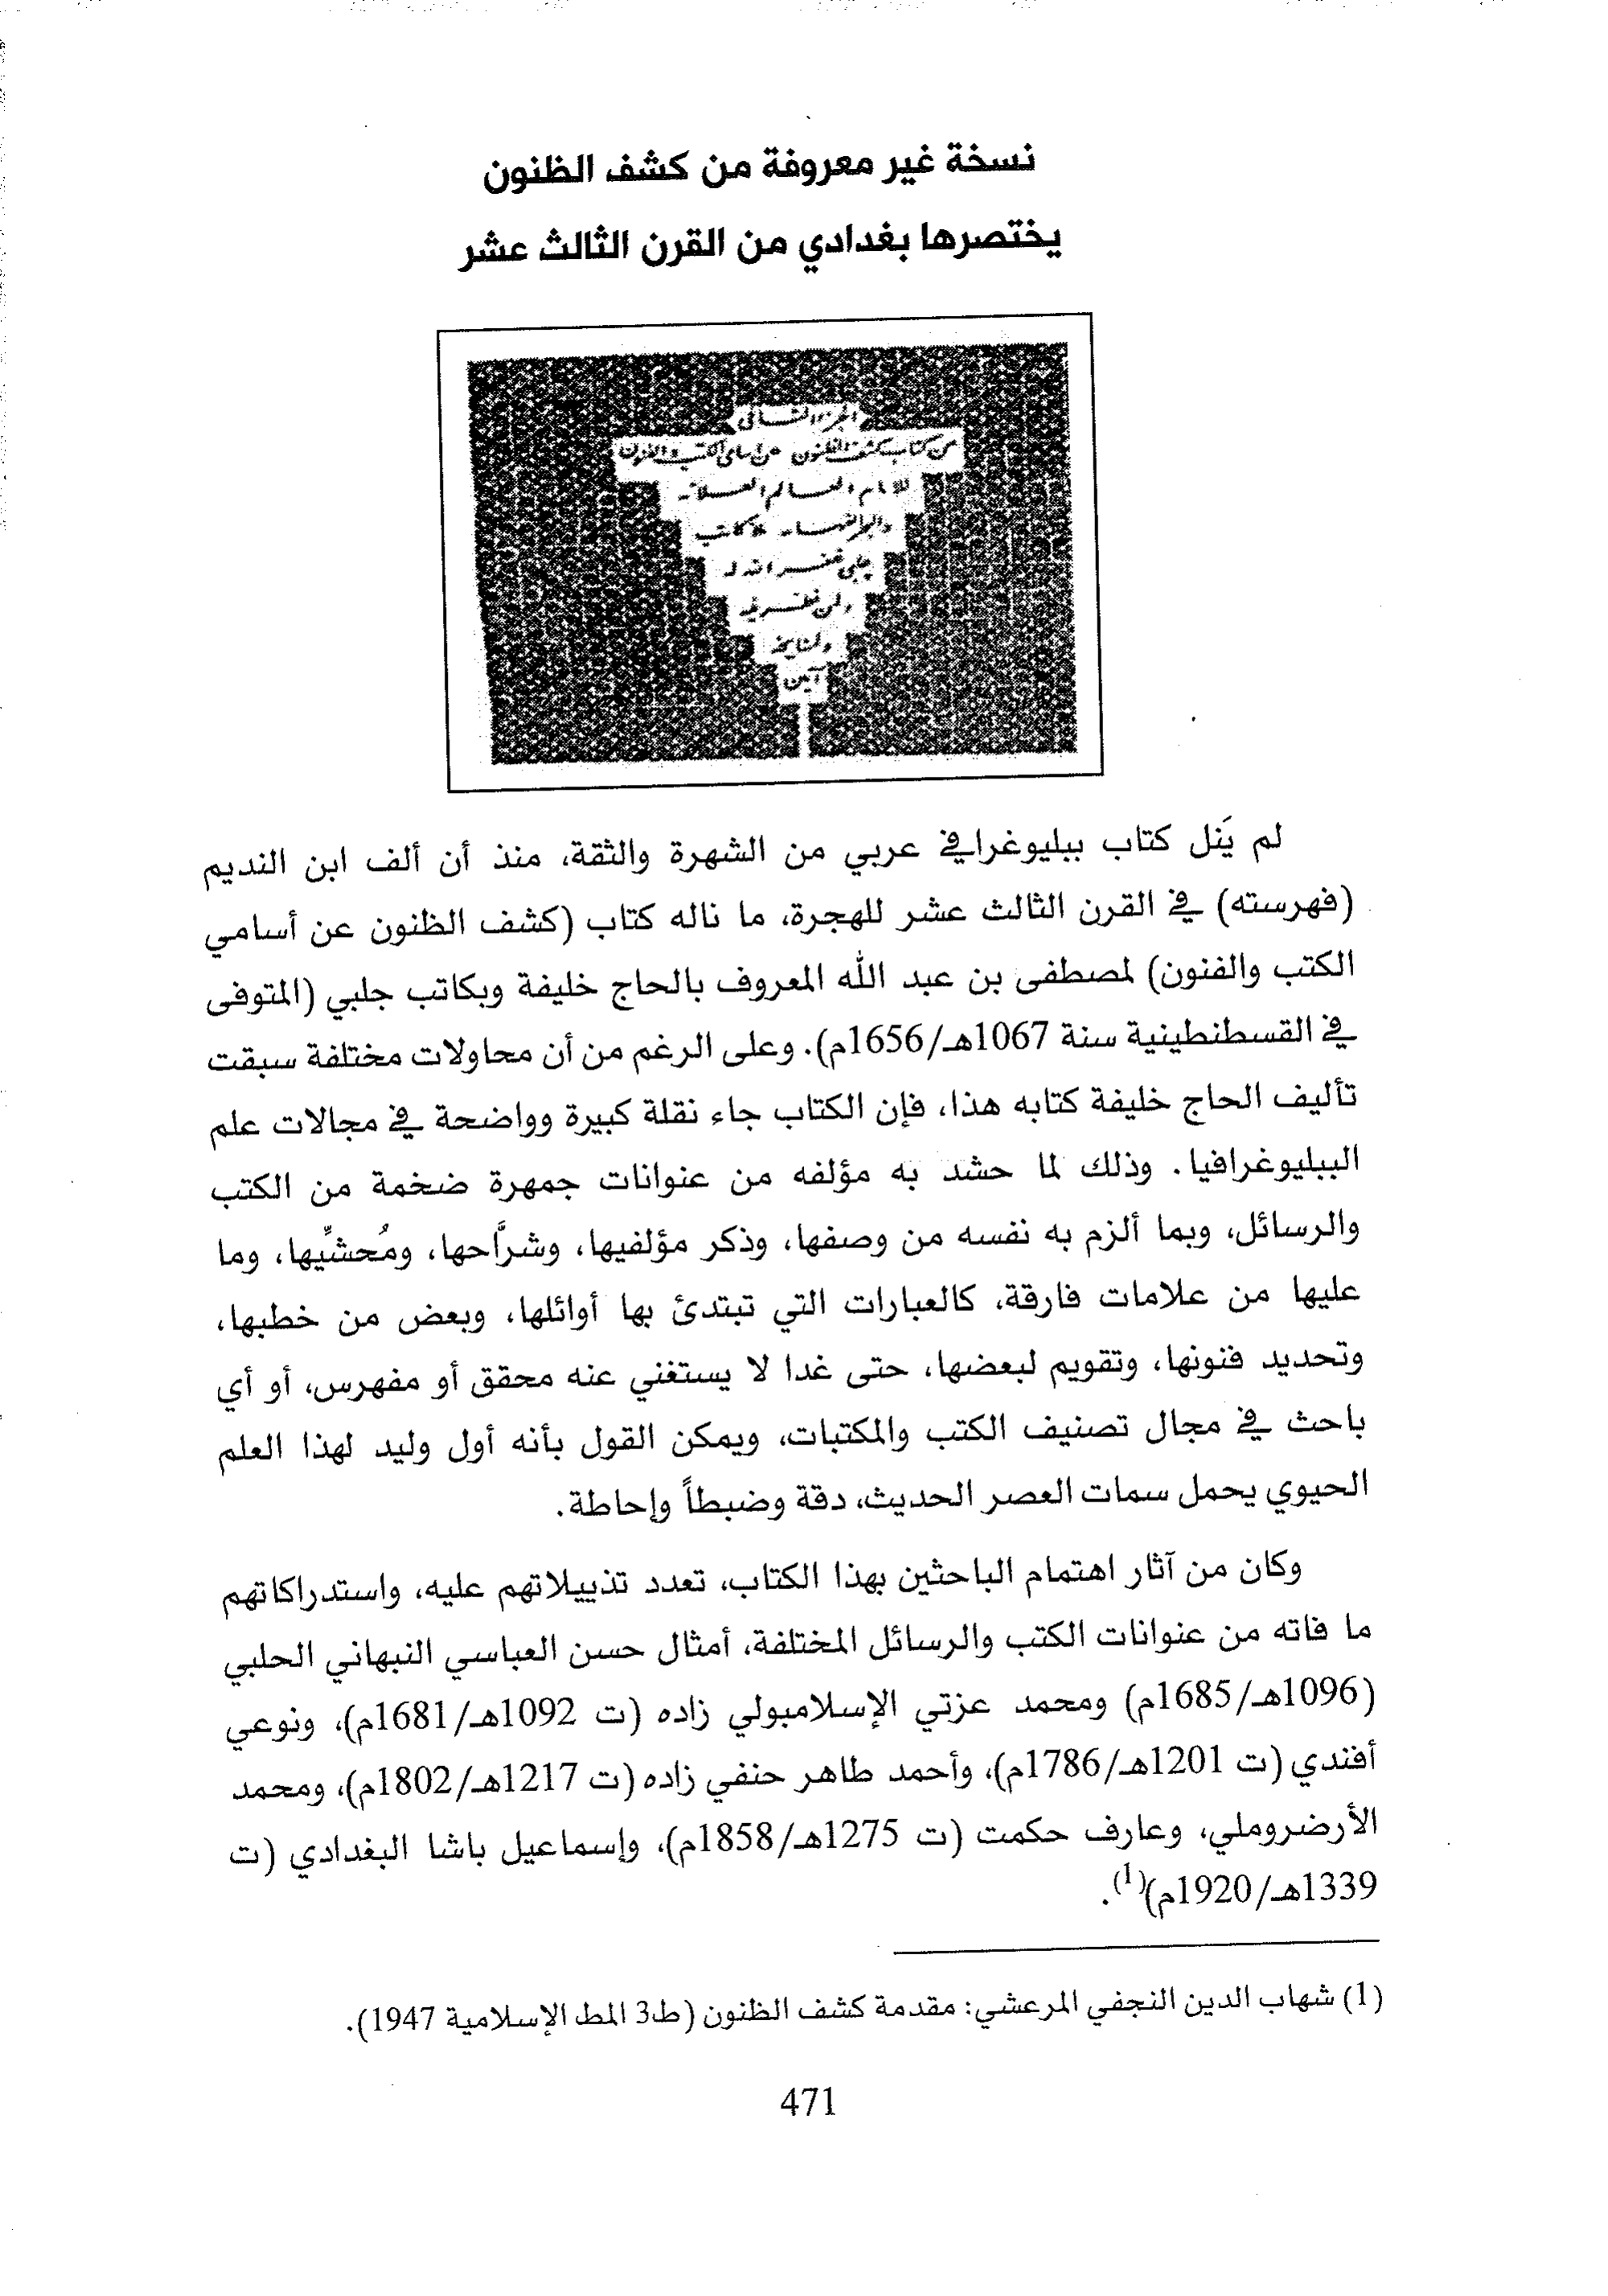 نسخة غير معروفة من كشف الظنون
يختصرها بغدادي من القرن الثالث عشر
الجزء الثاني
من كتاب كشف الظنون عن اسامي الكتب والفنون
للامام العالم العلامة
كاتب
جلبي غفر الله له
ولمن
آمين
لم يَنل كتاب ببليوغرافي عربي من الشهرة والثقة، منذ أن ألف ابن النديم
(فهرسته) في القرن الثالث عشر للهجرة، ما ناله كتاب (كشف الظنون عن أسامي
الكتب والفنون) لمصطفى بن عبد الله المعروف بالحاج خليفة وبكاتب جلبي (المتوفى
في القسطنطينية سنة 1067هـ/1656م). وعلى الرغم من أن محاولات مختلفة سبقت
تأليف الحاج خليفة كتابه هذا، فإن الكتاب جاء نقلة كبيرة وواضحة في مجالات علم
الببليوغرافيا. وذلك لما حشد به مؤلفه من عنوانات جمهرة ضخمة من الكتب
والرسائل، وبما ألزم به نفسه من وصفها، وذكر مؤلفيها، وشرَّاحها، ومُحشيِّها، وما
عليها من علامات فارقة، كالعبارات التي تبتدئ بها أوائلها، وبعض من خطبها،
وتحديد فنونها، وتقويم لبعضها، حتى غدا لا يستغني عنه محقق أو مفهرس، أو أي
باحث في مجال تصنيف الكتب والمكتبات، ويمكن القول بأنه أول وليد لهذا العلم
الحيوي يحمل سمات العصر الحديث، دقة وضبطاً وإحاطة.
وكان من آثار اهتمام الباحثين بهذا الكتاب، تعدد تذييلاتهم عليه، واستدراكاتهم
ما فاته من عنوانات الكتب والرسائل المختلفة، أمثال حسن العباسي النبهاني الحلبي
(1096هـ/1685م) ومحمد عزتي الإسلامبولي زاده (ت 1092هـ/1681م)، ونوعي
أفندي (ت 1201هـ/1786م)، وأحمد طاهر حنفي زاده (ت 1217هـ/1802م)، ومحمد
الأرضروملي، وعارف حكمت (ت 1275هـ/1858م)، وإسماعيل باشا البغدادي (ت
1339هـ/1920م)(1).
(1) شهاب الدين النجفي المرعشي: مقدمة كشف الظنون (ط3 المط الإسلامية 1947).
471